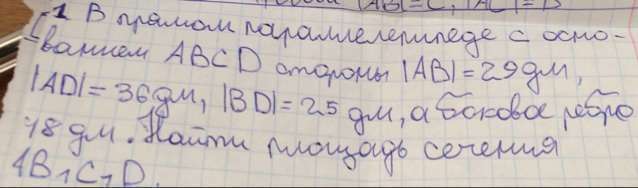 |AB|=C, |AC|=B
1 В прямом параллелепипеде с осно-
ванием ABCD стороны |AB|=29дм,
|AD|=36дм, |BD|=25 дм, а боковое ребро
48 дм. Найти площадь сечения
AB₁C₁D.